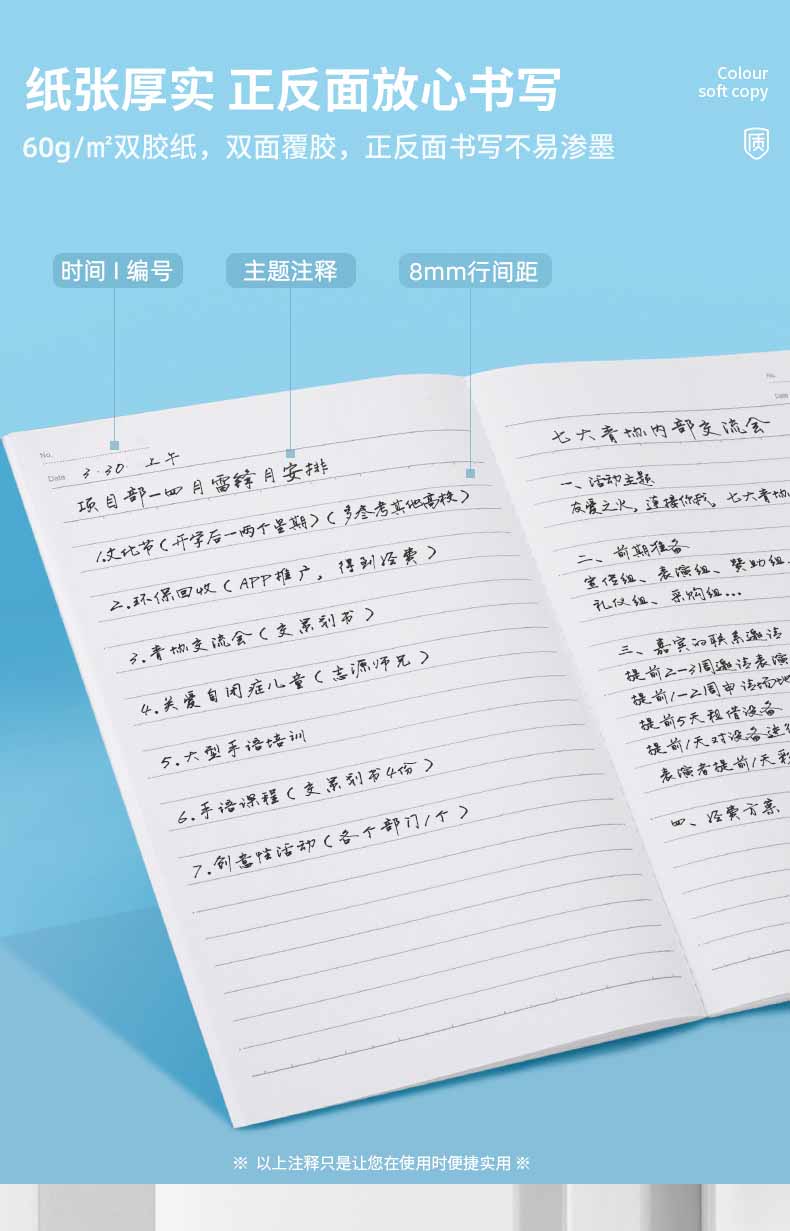 纸张厚实 正反面放心书写
Colour
soft copy
60g/㎡双胶纸，双面覆胶，正反面书写不易渗墨
质
时间 | 编号
主题注释
8mm行间距
No.
Date 3.30 上午
项目部—四月雷锋月安排
1.文化节(开学后一两个星期)(多参考其他高校)
2.环保回收(APP推广，得到经费)
3.青协交流会(交策划书)
4.关爱自闭症儿童(志源师兄)
5.大型手语培训
6.手语课程(交策划书4份)
7.创意性活动(各个部门1个)
No.
Date
七大青协内部交流会
一、活动主题
友爱之火，连接你我，七大青协
二、前期准备
宣传组、表演组、赞助组
礼仪组、采购组...
三、嘉宾的联系邀请
提前2-3周邀请表演
提前1-2周申请场地
提前5天租借设备
提前1天对设备进行
表演者提前1天彩
四、经费方案
※ 以上注释只是让您在使用时便捷实用 ※